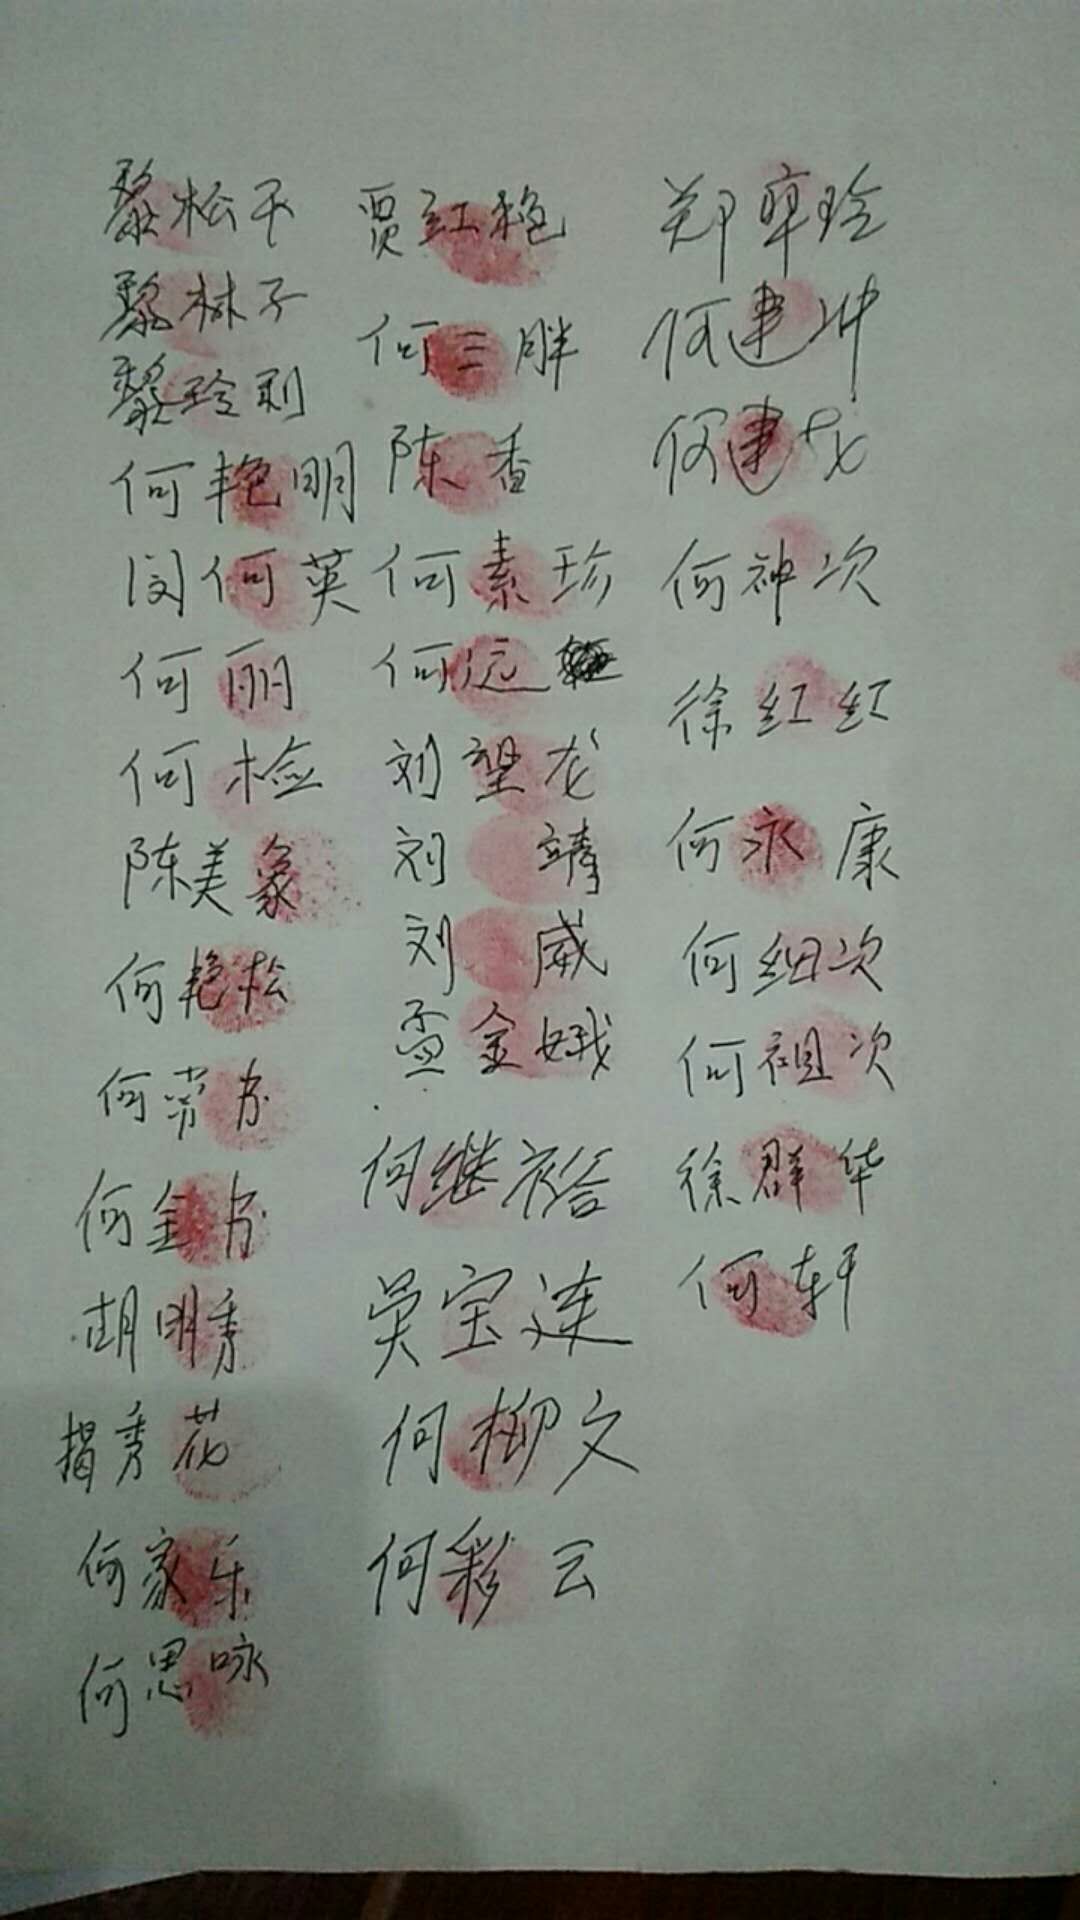 黎松干
黎林子
黎玲利
何艳明
闵何英
何丽
何检
陈美象
何艳松
何芳
何金
胡明秀
揭秀花
何家乐
何思咏
贾红艳
何三胖
陈香
何素珍
何远
刘望龙
刘靖
刘威
金娥
何继裕
吴宝莲
何柳文
何彩云
郑玲
何建
何建
何神次
徐红红
何永康
何细次
何祖次
徐群华
何轩